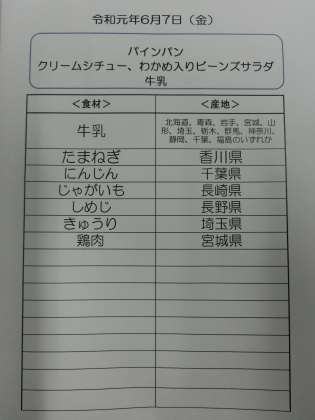 令和元年６月７日（金）
パインパン
クリームシチュー、わかめ入りビーンズサラダ
牛乳
＜食材＞ ＜産地＞
牛乳 北海道、青森、岩手、宮城、山
形、埼玉、栃木、群馬、神奈川、
静岡、千葉、福島のいずれか
たまねぎ 香川県
にんじん 千葉県
じゃがいも 長崎県
しめじ 長野県
きゅうり 埼玉県
鶏肉 宮城県